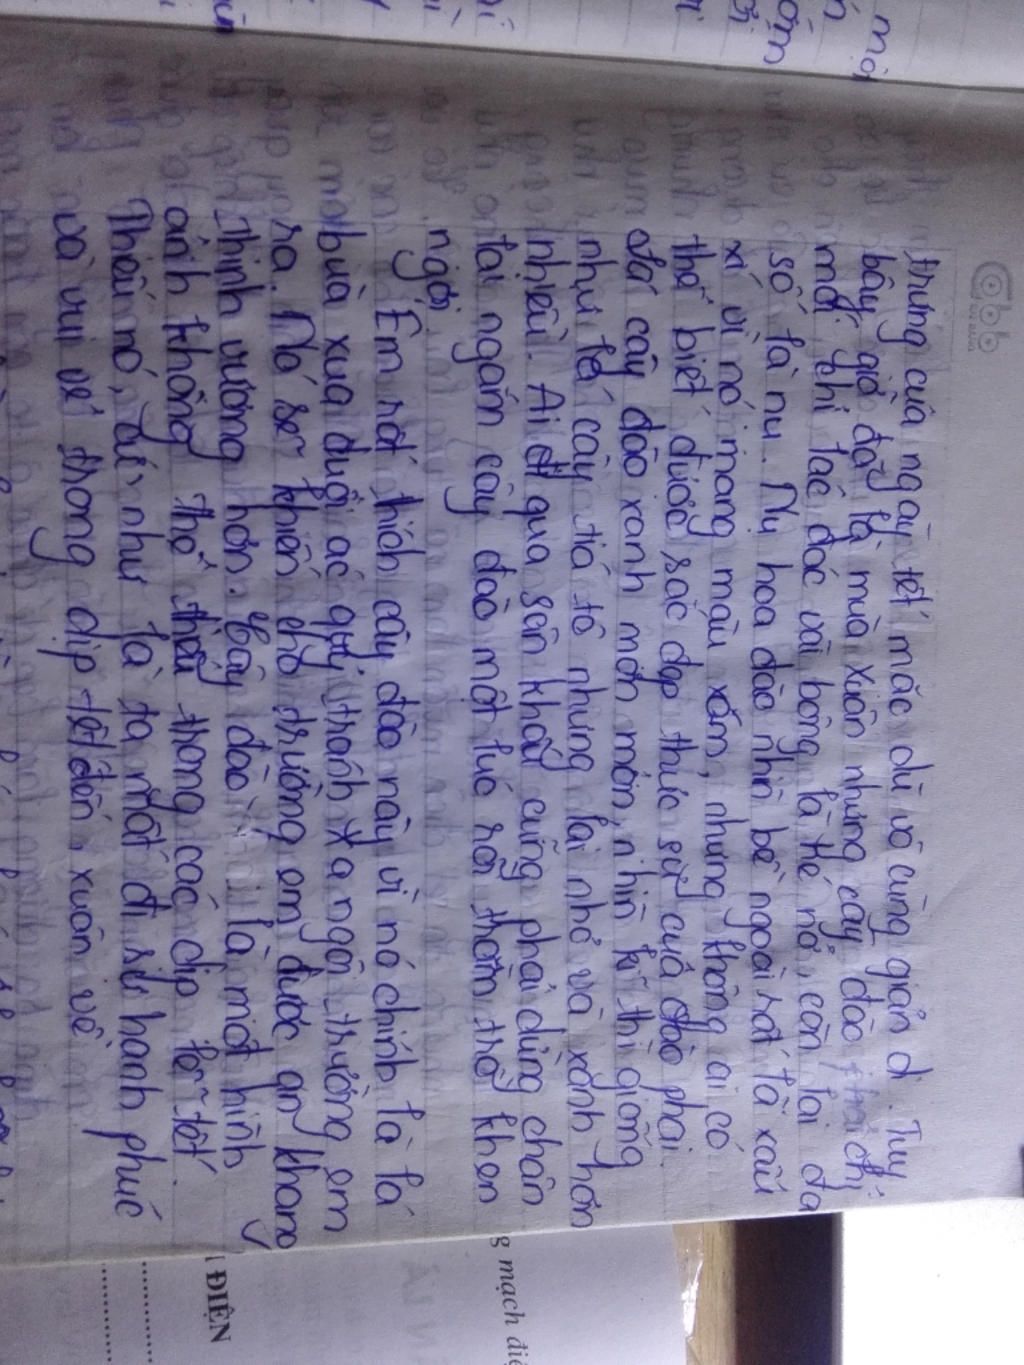 trưng của ngày tết mặc dù vô cùng giản dị. Tuy
bây giờ đã là mùa xuân nhưng cây đào chỉ
mới lác đác vài bông là hé nở, còn lại đa
số là nụ. Nụ hoa đào nhìn bề ngoài rất là xấu
xí vì nó mang màu xám, nhưng không ai có
thể biết được sắc đẹp thực sự của đào phai.
Lá cây đào xanh mơn mởn, nhìn kĩ thì giống
như lá cây tía tô nhưng lại nhỏ và xanh hơn
nhiều. Ai đi qua sân khấu cũng phải dừng chân
lại ngắm cây đào một lúc rồi trầm trồ khen
ngợi.
Em rất thích cây đào này vì nó chính là lá
bùa xua đuổi ác quỷ tránh xa ngôi trường em
ra. Nó sẽ khiến cho trường em được an khang
thịnh vượng hơn. Cây đào là một hình
ảnh không thể thiếu trong các dịp lễ tết.
Thiếu nó, như là ta mất đi sự hạnh phúc
và vui vẻ trong dịp tết đến xuân về
g mạch điệ
ĐIỆN